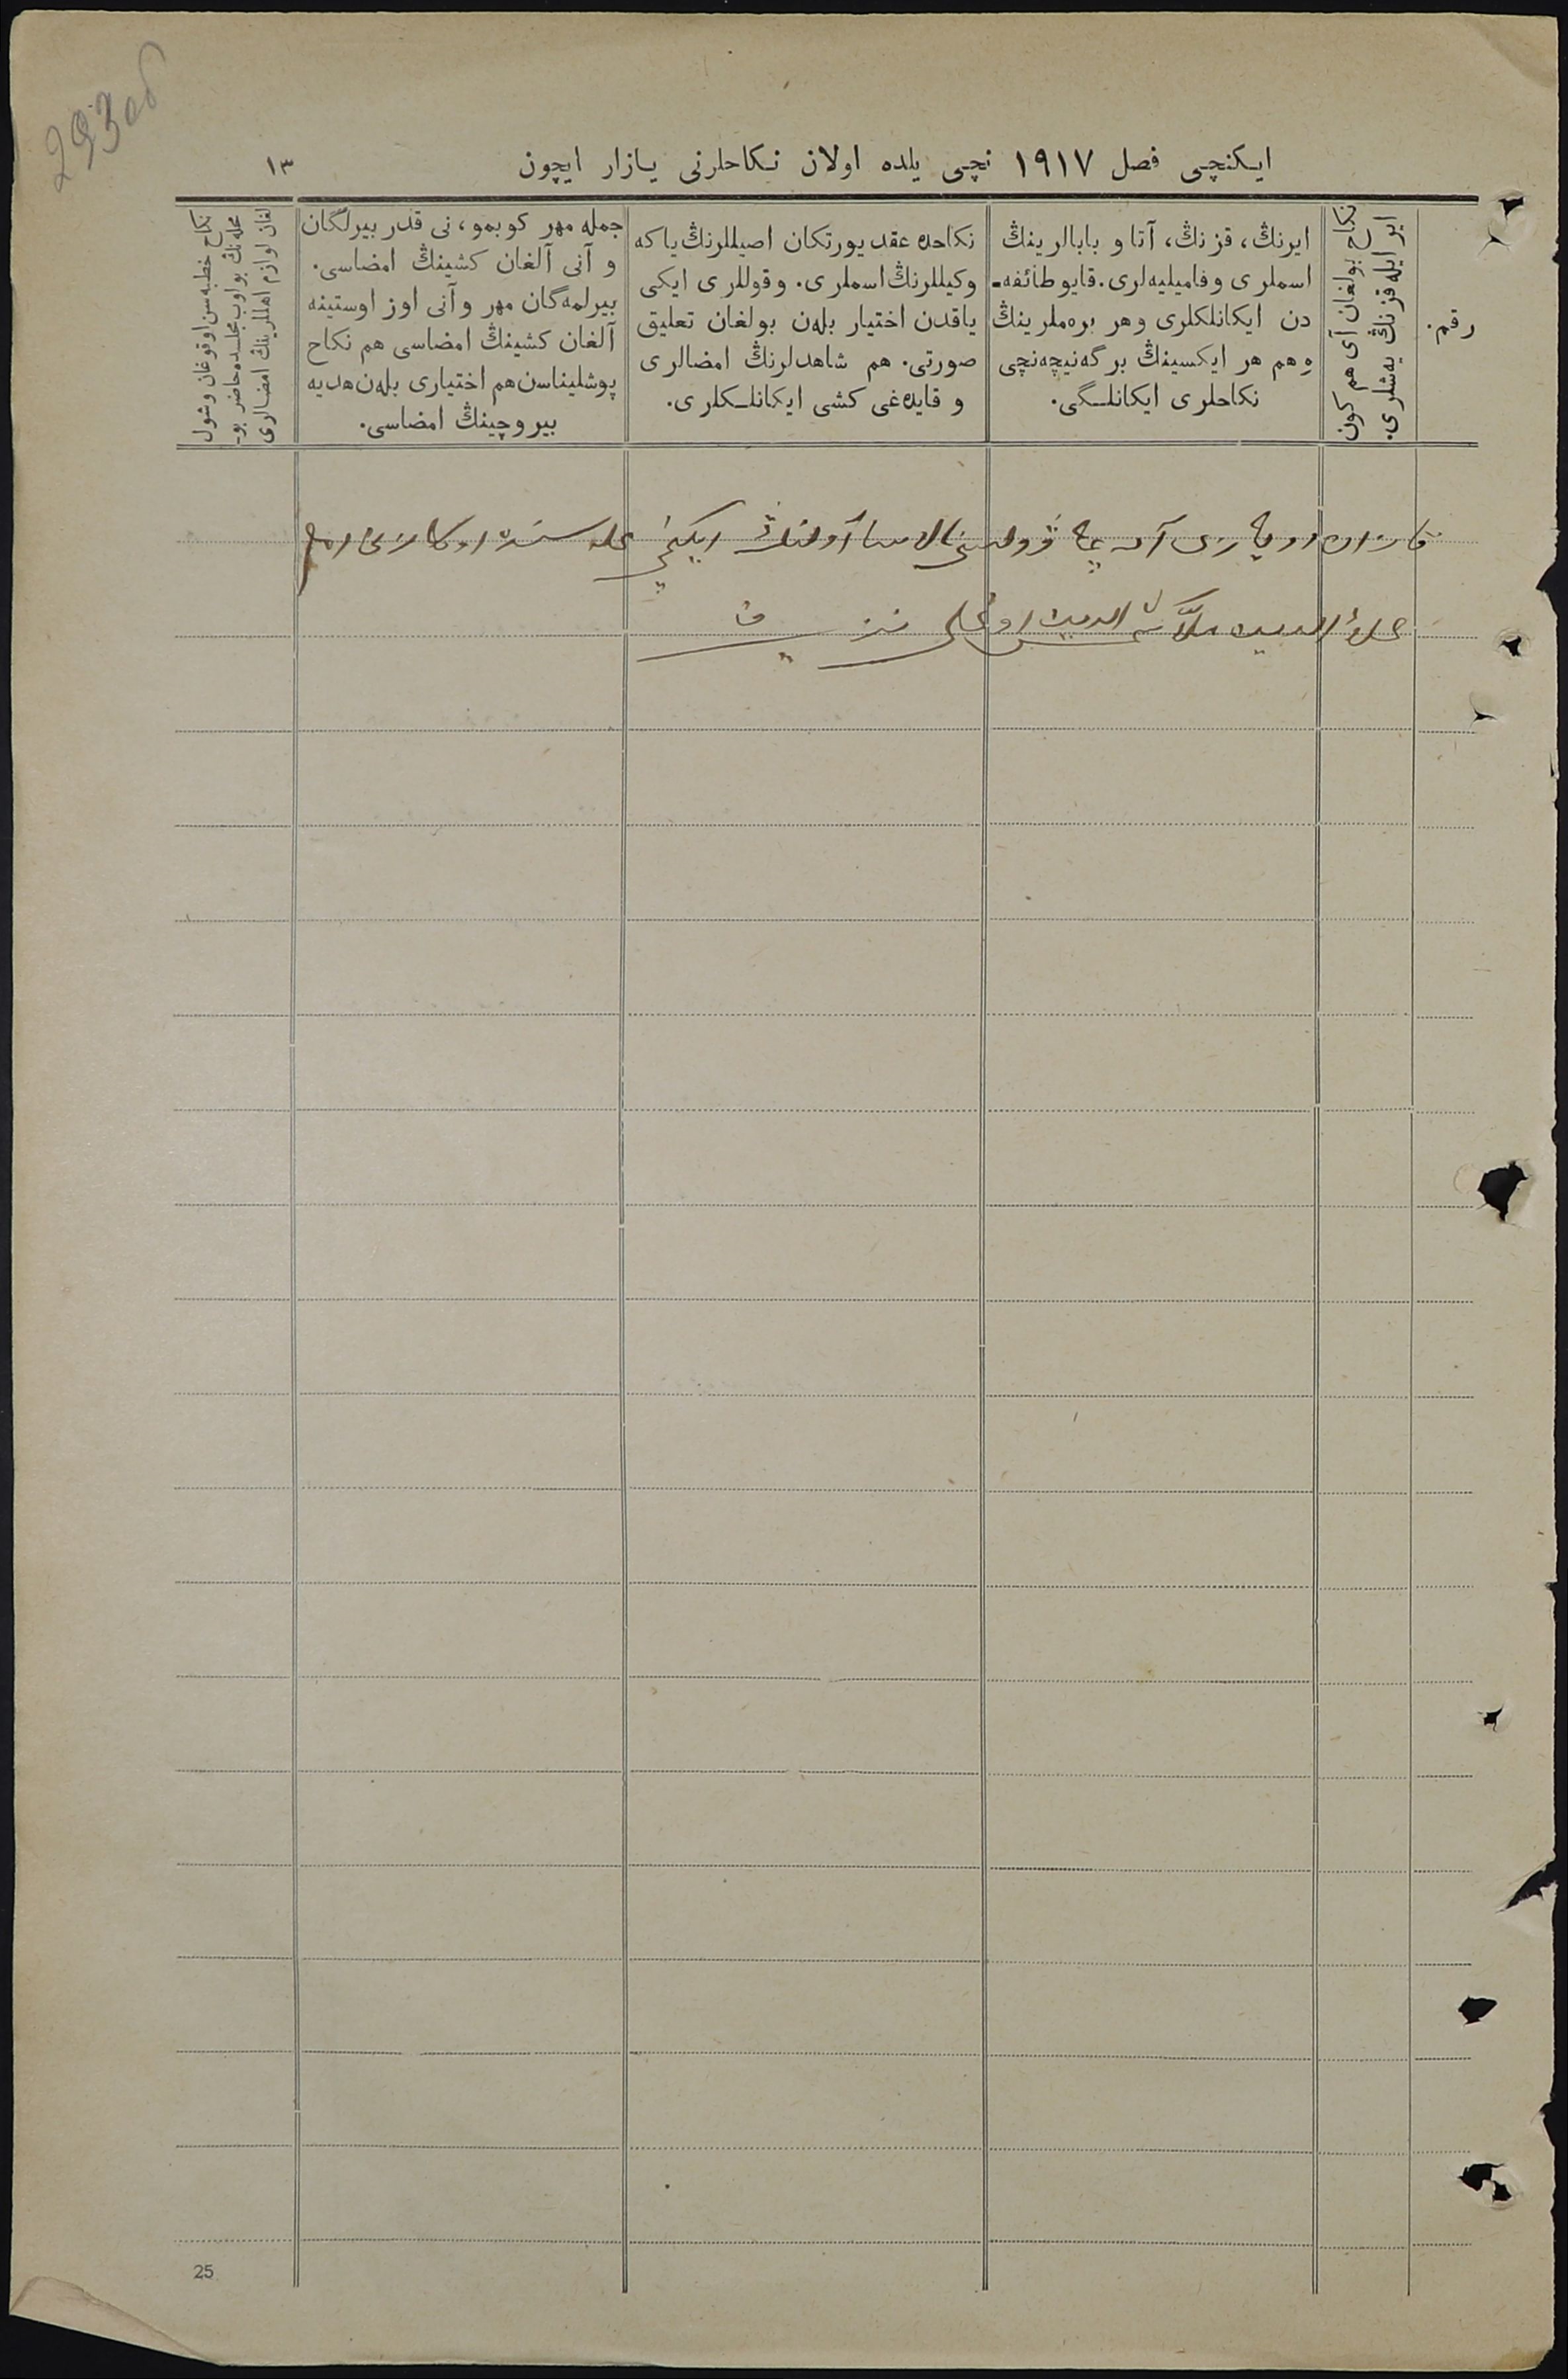 293 об
ایکنچی فصل ١٩١٧ نچی یلده اولان نکاحلرنی یازار ایچون
١٣
رقم.
نکاح بولغان آی هم کون
ایر ایله قزنڭ یه‌شلری.
ایرنڭ، قزنڭ، آتا و بابالرینڭ
اسملری و فامیلیه‌لری. قایو طائفه‌ـ
دن ایکانلکلری وهر بره‌ملرینڭ
وهم هر ایکسینڭ بر گه‌نیچه‌نچی
نکاحلری ایکانلـگی.
نکاحده عقد یورتکان اصیللرنڭ یا که
وکیللرنڭ اسملری. وقوللری ایکی
یاقدن اختیار بله‌ن بولغان تعلیق
صورتی. هم شاهدلرنڭ امضالری
و قایده‌غی کشی ایکانلـکلری.
جمله مهر کوبمو، نی قدر بیرلگان
و آنی آلغان کشینڭ امضاسی.
بیرلمه‌گان مهر و آنی اوز اوستینه
آلغان کشینڭ امضاسی هم نکاح
پوشلیناسن هم اختیاری بله‌ن هدیه
بیروچینڭ امضاسی.
نکاح خطبه‌سن اوقوغان وشول
محله‌نڭ بو اوب مجلسده حاضر بوـ
لغان لوازم اهللرینڭ امضالری
قازان آولنڭ ایکنچی محله
علاؤ الدین ملا شمس الدین اوغلی
25